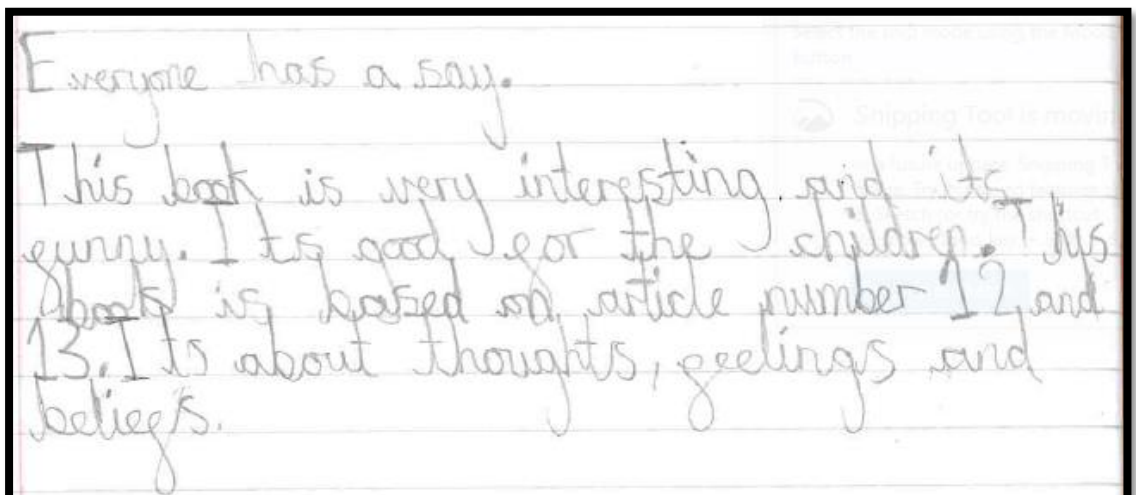 Everyone has a say.
This book is very interesting and its
funny. Its good for the children. This
book is based on article number 12 and
13. Its about thoughts, feelings and
beliefs.
Snipping Tool is movin